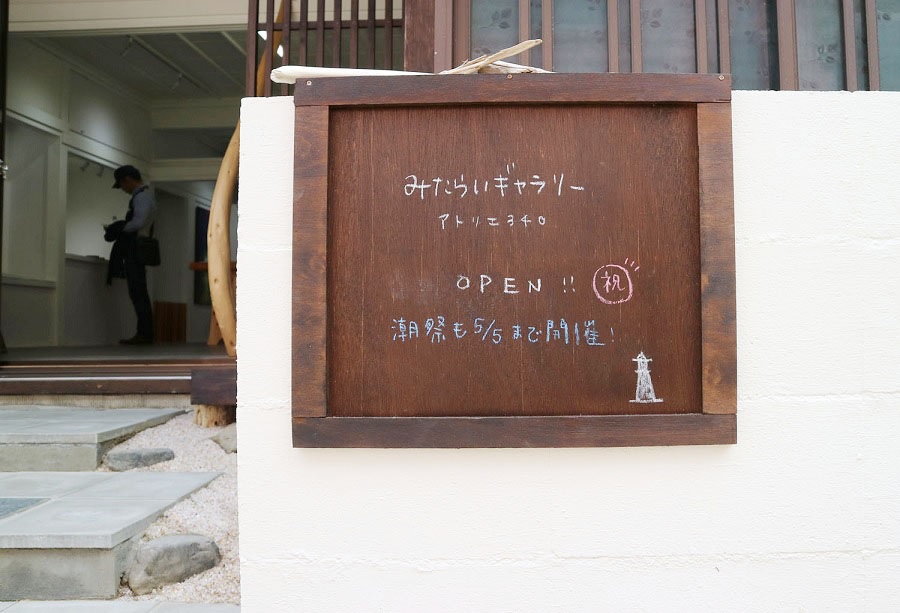 みたらいギャラリー
アトリエ340
OPEN!! 祝
潮祭も5/5まで開催!